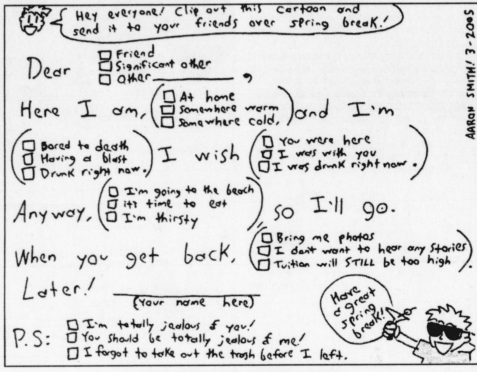 Hey everyone! Clip out this cartoon and
send it to your friends over spring break!
Dear
Friend
Significant other
Other ____________,
Here I am,
At home
Somewhere warm
Somewhere cold,
and I'm
Bored to death
Having a blast
Drunk right now.
I wish
You were here
I was with you
I was drunk right now.
Anyway,
I'm going to the beach
it's time to eat
I'm thirsty
so I'll go.
When you get back,
Bring me photos
I don't want to hear any stories
Tuition will STILL be too high
Later! ____________
(Your name here)
P.S:
I'm totally jealous of you!
You should be totally jealous of me!
I forgot to take out the trash before I left.
Have
a great
spring
break!
AARON SMITH! 3-2005